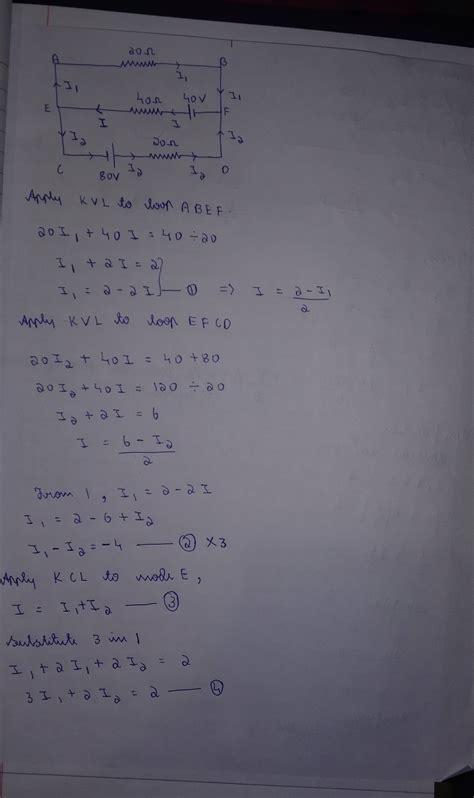 20Ω
A
B
I₁
I₁
I₁
E
40Ω
40V
F
I
I
I₂
I₂
20Ω
C
80V
I₂
I₂
D
Apply KVL to loop ABEF.
20I₁ + 40I = 40 ÷ 20
I₁ + 2I = 2
I₁ = 2 - 2I — ① ⇒ I = (2 - I₁)/2
Apply KVL to loop EFCD
20I₂ + 40I = 40 + 80
20I₂ + 40I = 120 ÷ 20
I₂ + 2I = 6
I = (6 - I₂)/2
From 1, I₁ = 2 - 2I
I₁ = 2 - 6 + I₂
I₁ - I₂ = -4 — ② ×3
Apply KCL to node E,
I = I₁ + I₂ — ③
Substitute 3 in 1
I₁ + 2I₁ + 2I₂ = 2
3I₁ + 2I₂ = 2 — ④